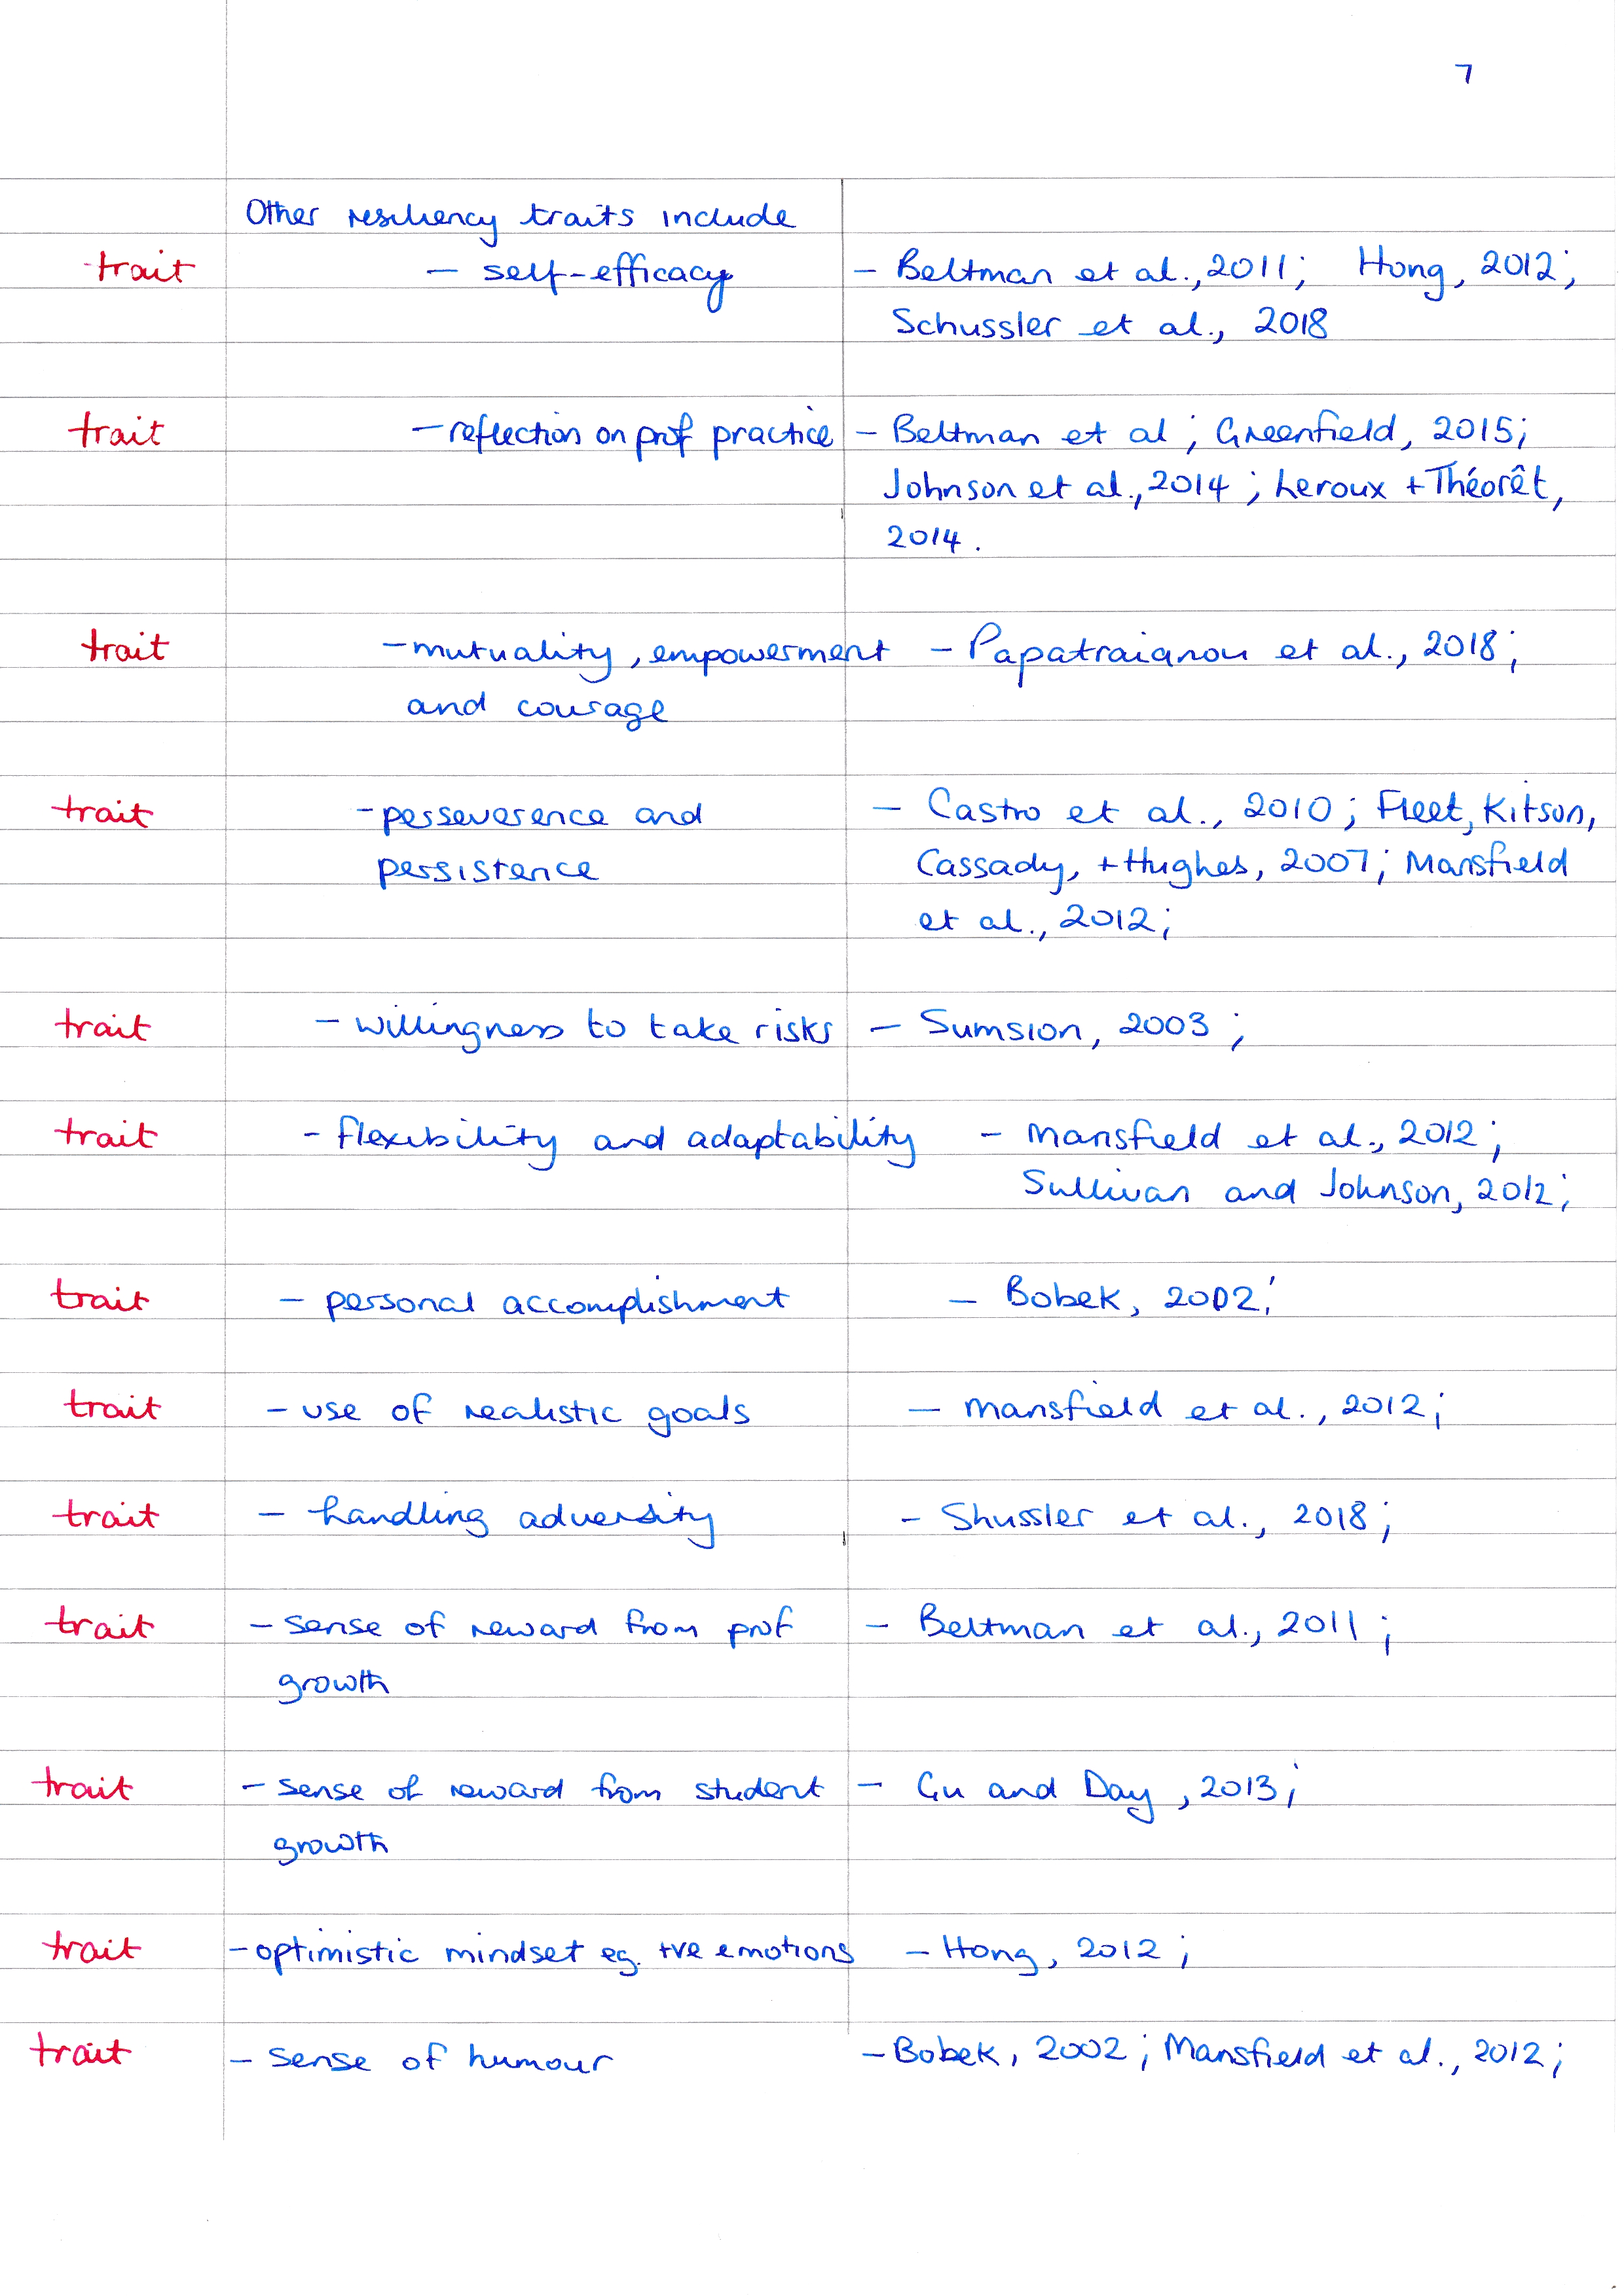 7
Other resiliency traits include
trait - self-efficacy - Beltman et al., 2011; Hong, 2012;
Schussler et al., 2018
trait - reflection on prof practice - Beltman et al ; Greenfield, 2015;
Johnson et al., 2014 ; Leroux + Théorêt,
2014.
trait - mutuality, empowerment - Papatraianou et al., 2018;
and courage
trait - perseverence and - Castro et al., 2010; Fleet, Kitson,
persistence Cassady, + Hughes, 2007; Mansfield
et al., 2012;
trait - willingness to take risks - Sumsion, 2003 ;
trait - flexibility and adaptability - Mansfield et al., 2012;
Sullivan and Johnson, 2012;
trait - personal accomplishment - Bobek, 2002;
trait - use of realistic goals - Mansfield et al., 2012;
trait - handling adversity - Shussler et al., 2018;
trait - sense of reward from prof - Beltman et al., 2011 ;
growth
trait - sense of reward from student - Gu and Day, 2013;
growth
trait - optimistic mindset eg. +ve emotions - Hong, 2012 ;
trait - sense of humour - Bobek, 2002 ; Mansfield et al., 2012;